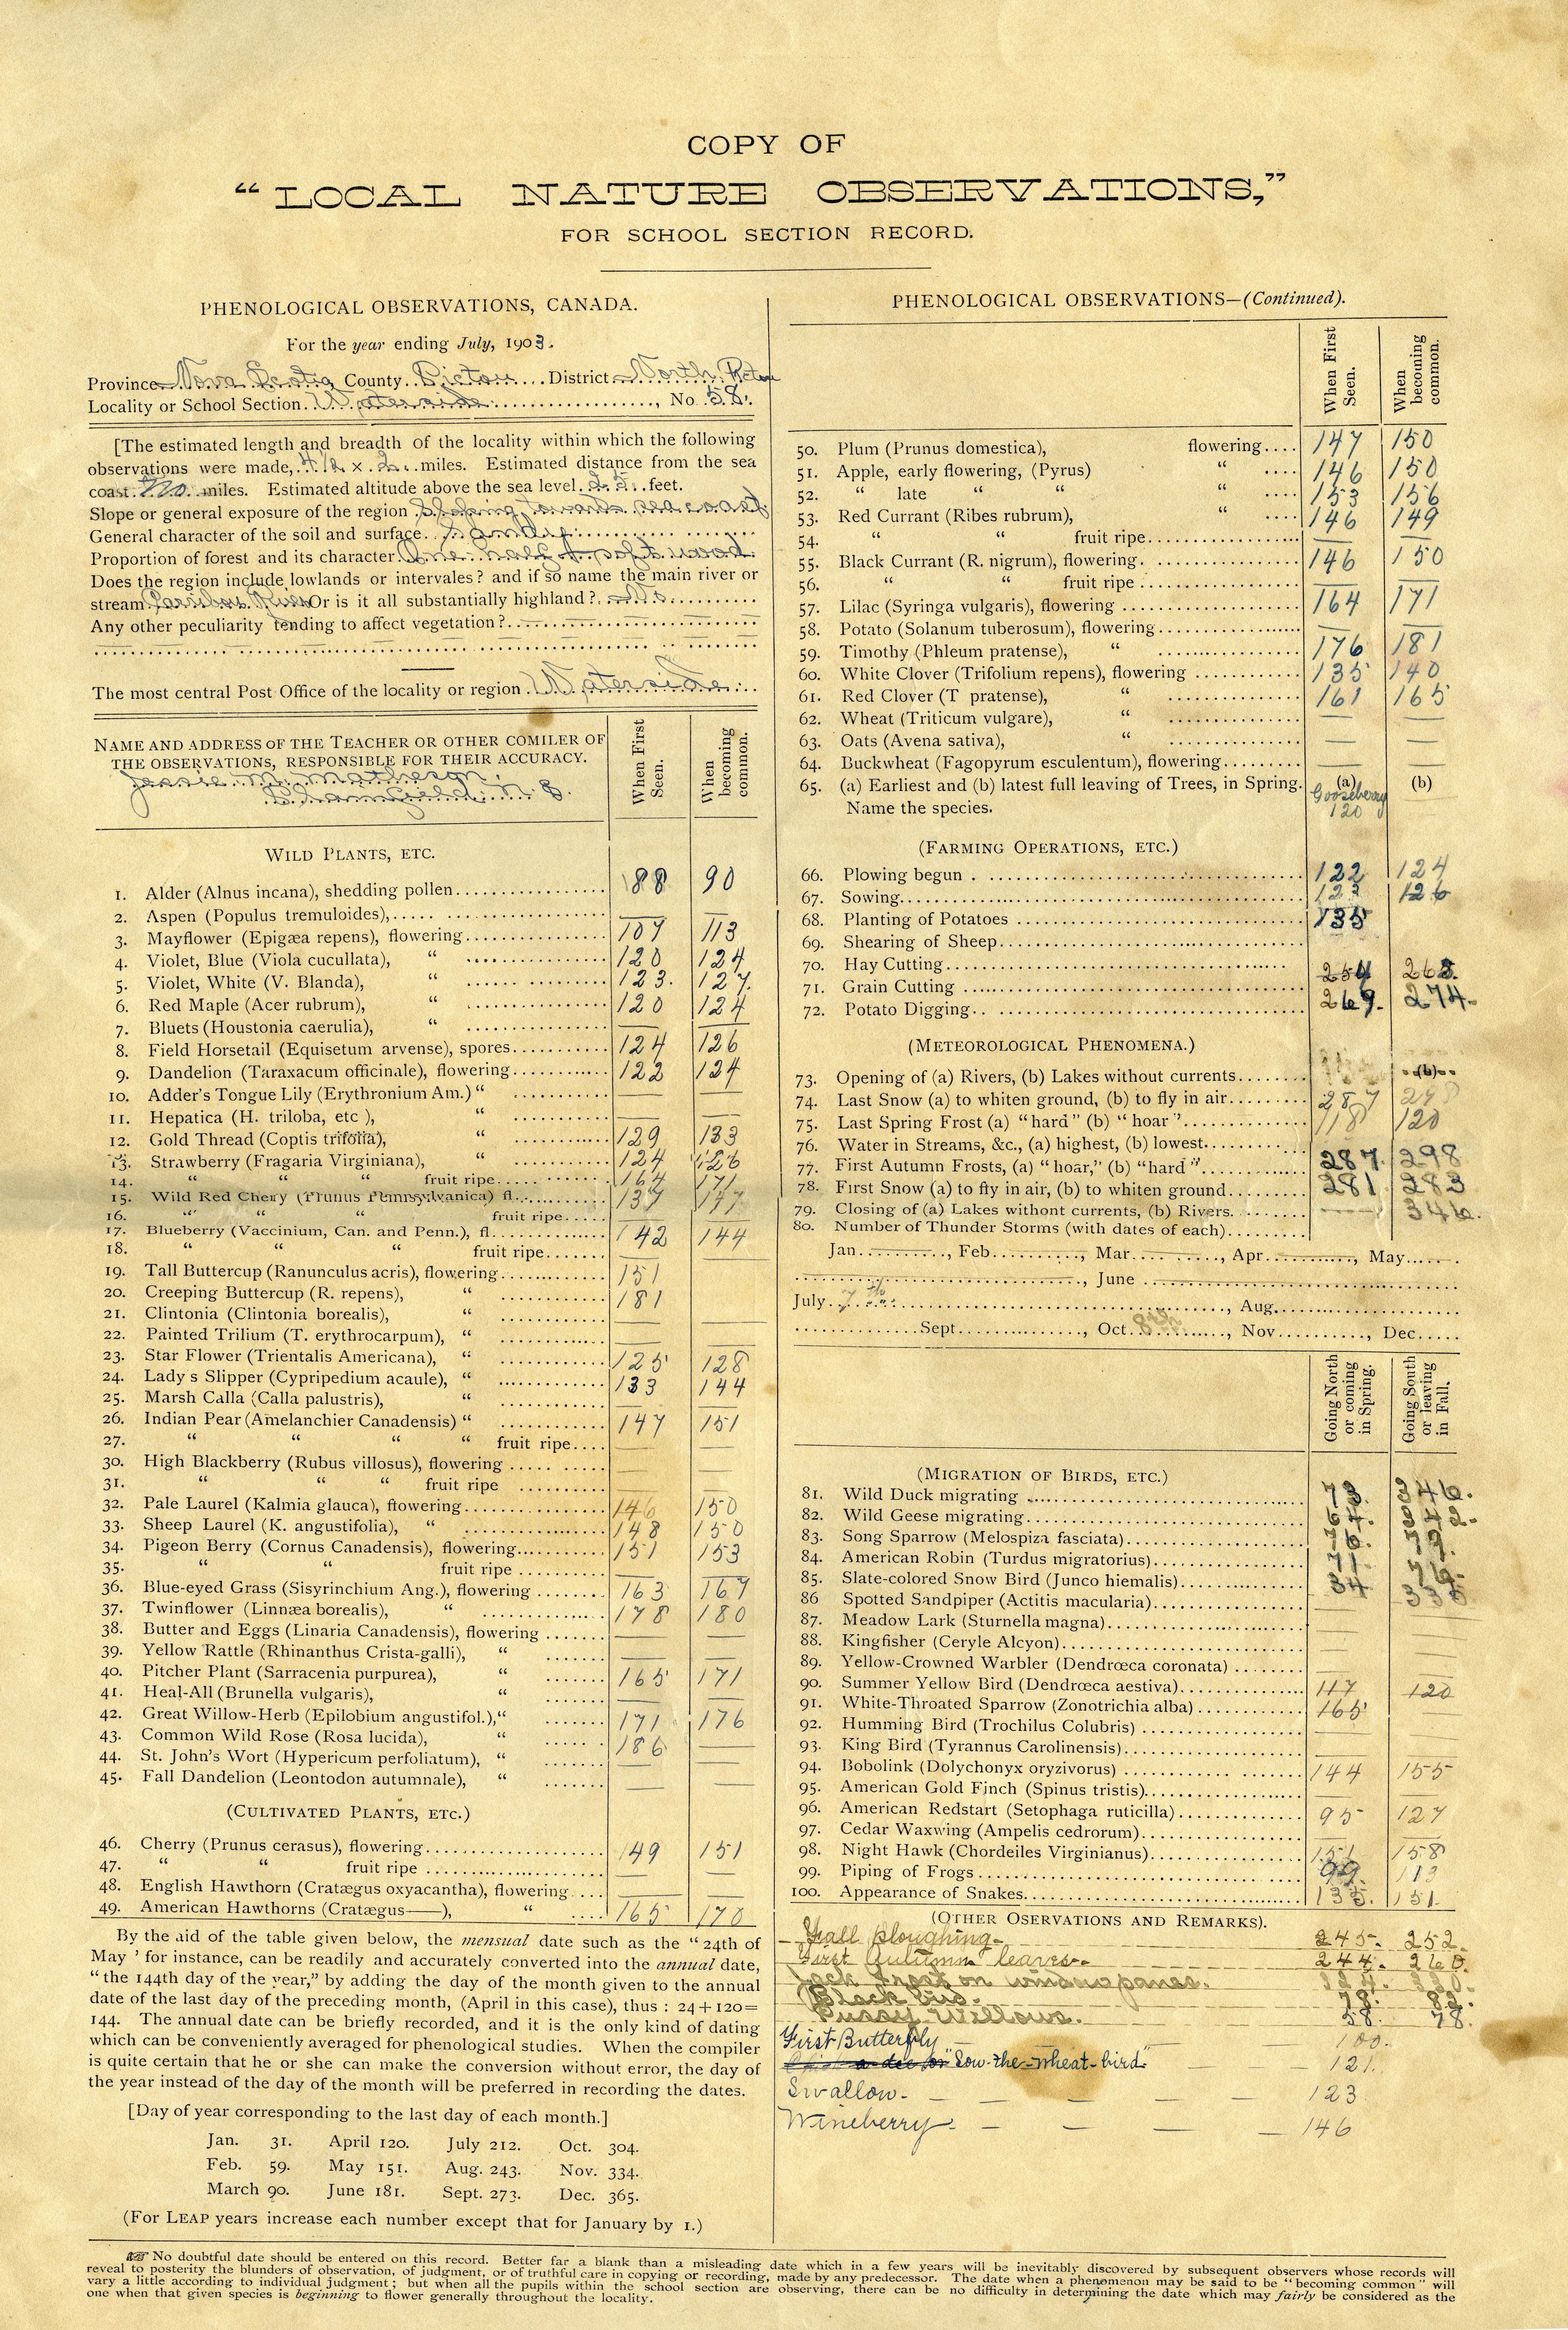 COPY OF
“LOCAL NATURE OBSERVATIONS,”
FOR SCHOOL SECTION RECORD.
PHENOLOGICAL OBSERVATIONS, CANADA.
For the year ending July, 1903.
Province Nova Scotia County Pictou District North Pictou
Locality or School Section Waterside, No 58.
[The estimated length and breadth of the locality within which the following
observations were made, × 2 miles. Estimated distance from the sea
coast miles. Estimated altitude above the sea level feet.
Slope or general exposure of the region Sloping towards sea coast
General character of the soil and surface. Sandy
Proportion of forest and its character One half soft wood
Does the region include lowlands or intervales? and if so name the main river or
stream Caribou River Or is it all substantially highland? No
Any other peculiarity tending to affect vegetation?
The most central Post Office of the locality or region Waterside
NAME AND ADDRESS OF THE TEACHER OR OTHER COMILER OF
THE OBSERVATIONS, RESPONSIBLE FOR THEIR ACCURACY.
Jessie M. Matheson,
N. S.
When First Seen.
When becoming common.
WILD PLANTS, ETC.
1. Alder (Alnus incana), shedding pollen 88 90
2. Aspen (Populus tremuloides), — —
3. Mayflower (Epigæa repens), flowering 107 113
4. Violet, Blue (Viola cucullata), “ 120 124
5. Violet, White (V. Blanda), “ 123. 127.
6. Red Maple (Acer rubrum), “ 120 124
7. Bluets (Houstonia caerulia), “ — —
8. Field Horsetail (Equisetum arvense), spores 124 126
9. Dandelion (Taraxacum officinale), flowering 122 124
10. Adder's Tongue Lily (Erythronium Am.) “ — —
11. Hepatica (H. triloba, etc ), “ — —
12. Gold Thread (Coptis trifolia), “ 129 133
13. Strawberry (Fragaria Virginiana), “ 124 126
14. “ “ “ fruit ripe 164 171
15. Wild Red Cherry (Prunus Pennsylvanica) fl. 137
16. “ “ “ fruit ripe — —
17. Blueberry (Vaccinium, Can. and Penn.), fl 142 144
18. “ “ “ fruit ripe — —
19. Tall Buttercup (Ranunculus acris), flowering 151
20. Creeping Buttercup (R. repens), “ 181
21. Clintonia (Clintonia borealis), “ — —
22. Painted Trilium (T. erythrocarpum), “ — —
23. Star Flower (Trientalis Americana), “ 125 128
24. Lady s Slipper (Cypripedium acaule), “ 133 144
25. Marsh Calla (Calla palustris), “ — —
26. Indian Pear (Amelanchier Canadensis) “ 147 151
27. “ “ “ “ fruit ripe — —
30. High Blackberry (Rubus villosus), flowering — —
31. “ “ “ fruit ripe — —
32. Pale Laurel (Kalmia glauca), flowering 146 150
33. Sheep Laurel (K. angustifolia), “ 148 150
34. Pigeon Berry (Cornus Canadensis), flowering 151 153
35. “ “ fruit ripe — —
36. Blue-eyed Grass (Sisyrinchium Ang.), flowering 163 167
37. Twinflower (Linnæa borealis), “ 178 180
38. Butter and Eggs (Linaria Canadensis), flowering — —
39. Yellow Rattle (Rhinanthus Crista-galli), “ — —
40. Pitcher Plant (Sarracenia purpurea), “ 165 171
41. Heal-All (Brunella vulgaris), “ — —
42. Great Willow-Herb (Epilobium angustifol.), “ 171 176
43. Common Wild Rose (Rosa lucida), “ 186 —
44. St. John's Wort (Hypericum perfoliatum), “ — —
45. Fall Dandelion (Leontodon autumnale), “ — —
(CULTIVATED PLANTS, ETC.)
46. Cherry (Prunus cerasus), flowering 149 151
47. “ “ fruit ripe — —
48. English Hawthorn (Cratægus oxyacantha), flowering — —
49. American Hawthorns (Cratægus——), “ 165 170
By the aid of the table given below, the mensual date such as the “24th of
May ' for instance, can be readily and accurately converted into the annual date,
“the 144th day of the year,” by adding the day of the month given to the annual
date of the last day of the preceding month, (April in this case), thus : 24+120=
144. The annual date can be briefly recorded, and it is the only kind of dating
which can be conveniently averaged for phenological studies. When the compiler
is quite certain that he or she can make the conversion without error, the day of
the year instead of the day of the month will be preferred in recording the dates.
[Day of year corresponding to the last day of each month.]
Jan. 31. April 120. July 212. Oct. 304.
Feb. 59. May 151. Aug. 243. Nov. 334.
March 90. June 181. Sept. 273. Dec. 365.
(For LEAP years increase each number except that for January by 1.)
PHENOLOGICAL OBSERVATIONS—(Continued).
When First Seen.
When becoming common.
50. Plum (Prunus domestica), flowering 147 150
51. Apple, early flowering, (Pyrus) “ 146 150
52. “ late “ “ “ 153 156
53. Red Currant (Ribes rubrum), “ 146 149
54. “ “ fruit ripe — —
55. Black Currant (R. nigrum), flowering 146 150
56. “ “ fruit ripe — —
57. Lilac (Syringa vulgaris), flowering 164 171
58. Potato (Solanum tuberosum), flowering — —
59. Timothy (Phleum pratense), “ 176 181
60. White Clover (Trifolium repens), flowering 135 140
61. Red Clover (T pratense), “ 161 165
62. Wheat (Triticum vulgare), “ — —
63. Oats (Avena sativa), “ — —
64. Buckwheat (Fagopyrum esculentum), flowering — —
65. (a) Earliest and (b) latest full leaving of Trees, in Spring. (a) (b)
Name the species. Gooseberry 120
(FARMING OPERATIONS, ETC.)
66. Plowing begun 122 124
67. Sowing 123 126
68. Planting of Potatoes 135
69. Shearing of Sheep
70. Hay Cutting
71. Grain Cutting 254 268.
72. Potato Digging 269. 274.
(METEOROLOGICAL PHENOMENA.)
73. Opening of (a) Rivers, (b) Lakes without currents (b)
74. Last Snow (a) to whiten ground, (b) to fly in air 287
75. Last Spring Frost (a) “hard” (b) “hoar” 118 120
76. Water in Streams, &c., (a) highest, (b) lowest
77. First Autumn Frosts, (a) “hoar,” (b) “hard” 287 298
78. First Snow (a) to fly in air, (b) to whiten ground 281 283
79. Closing of (a) Lakes without currents, (b) Rivers. — 346.
80. Number of Thunder Storms (with dates of each)
Jan., Feb., Mar., Apr., May
, June
July 7th, Aug.
Sept, Oct. 8th, Nov., Dec.
Going North or coming in Spring.
Going South or leaving in Fall.
(MIGRATION OF BIRDS, ETC.)
81. Wild Duck migrating 73. 346.
82. Wild Geese migrating
83. Song Sparrow (Melospiza fasciata)
84. American Robin (Turdus migratorius)
85. Slate-colored Snow Bird (Junco hiemalis)
86 Spotted Sandpiper (Actitis macularia)
87. Meadow Lark (Sturnella magna) — —
88. Kingfisher (Ceryle Alcyon) — —
89. Yellow-Crowned Warbler (Dendrœca coronata) — —
90. Summer Yellow Bird (Dendrœca aestiva) 117 120
91. White-Throated Sparrow (Zonotrichia alba) 165
92. Humming Bird (Trochilus Colubris) — —
93. King Bird (Tyrannus Carolinensis) — —
94. Bobolink (Dolychonyx oryzivorus) 144 155
95. American Gold Finch (Spinus tristis) — —
96. American Redstart (Setophaga ruticilla) 95 127
97. Cedar Waxwing (Ampelis cedrorum) — —
98. Night Hawk (Chordeiles Virginianus) 151 158
99. Piping of Frogs 99. 113
100. Appearance of Snakes 135. 151.
(OTHER OSERVATIONS AND REMARKS).
Fall ploughing 245. 252.
First Autumn leaves 244. 260.
Jack Frost on window panes.
Black bird. 78. 82.
Pussy Willows. 58. 78.
First Butterfly — 100.
“Sow-the-wheat-bird” — 121.
Swallow — 123
Wineberry — 146
☞ No doubtful date should be entered on this record. Better far a blank than a misleading date which in a few years will be inevitably discovered by subsequent observers whose records will
reveal to posterity the blunders of observation, of judgment, or of truthful care in copying or recording, made by any predecessor. The date when a phenomenon may be said to be “becoming common” will
vary a little according to individual judgment; but when all the pupils within the school section are observing, there can be no difficulty in determining the date which may fairly be considered as the
one when that given species is beginning to flower generally throughout the locality.